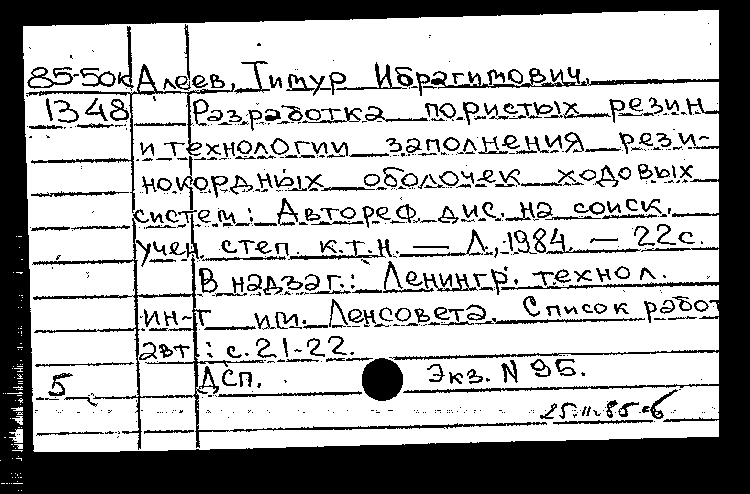 85-50к Алеев, Тимур Ибрагимович.
1348 Разработка пористых резин
и технологии заполнения рези-
нокордных оболочек ходовых
систем: Автореф. дис. на соиск.
учен. степ. к.т.н. — Л., 1984. — 22 с.
В надзаг.: Ленингр. технол.
ин-т им. Ленсовета. Список работ
авт.: с. 21-22.
5 ДСП. Экз. N 95.
25.11.85-б